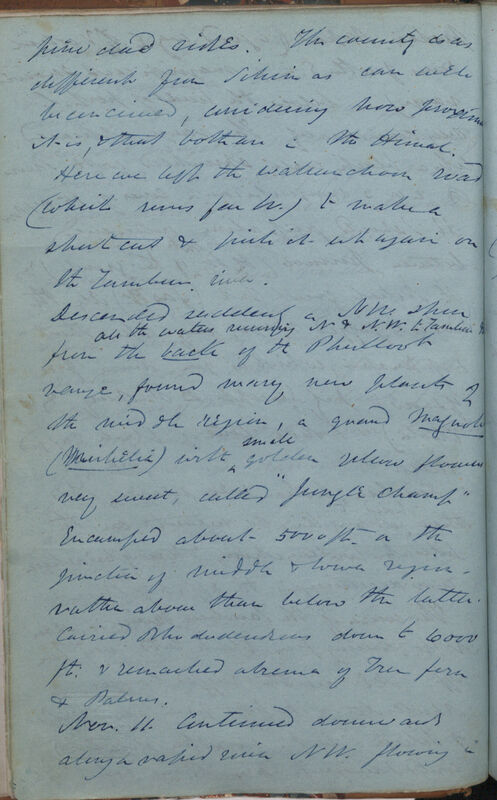 pine clad ridges. The country is as
different from Sikkim as can well
be conceived, considering how
it is, & that both are in the Himal.
Here we left the wallanchoon road
(which runs far W.) to make a
short cut & pick it up again on
the Tambur river.
Descended suddenly a NW. spur
all the waters running N & NW. to Tambur
from the back of the Phulloot
range, found many new plants of
the middle region, a grand Magnol
(Michelia) with small golden yellow flowers
very sweet, called "Jungle Champ"
Encamped about 5000 ft. on the
junction of middle & lower region.
rather above than below the latter.
Carried Rhododendrons down to 6000
ft. & remarked absence of Tree fern
& Palms.
Nov. 11. Continued downwards
along a rapid river NW. flowing in